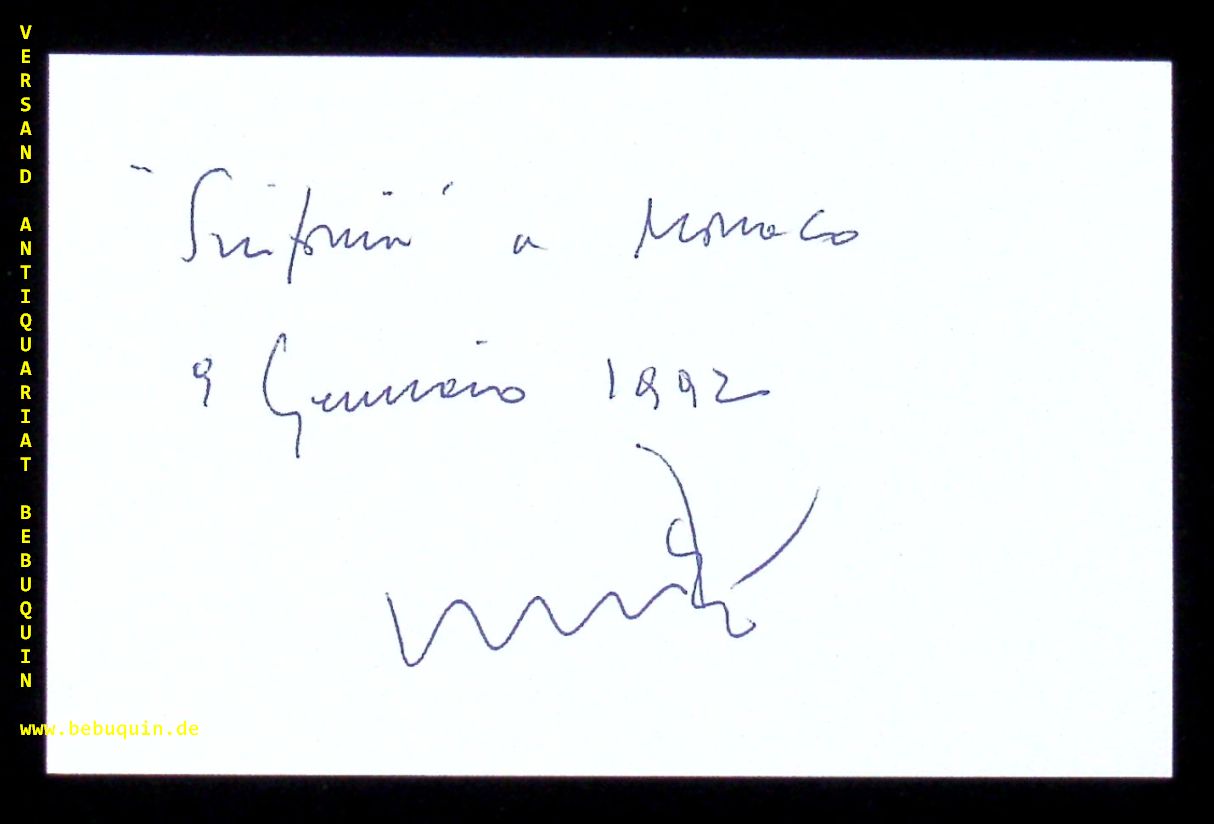 VERSAND ANTIQUARIAT BEBUQUIN
"Sinfonia" a Monaco
9 Gennaio 1992
www.bebuquin.de